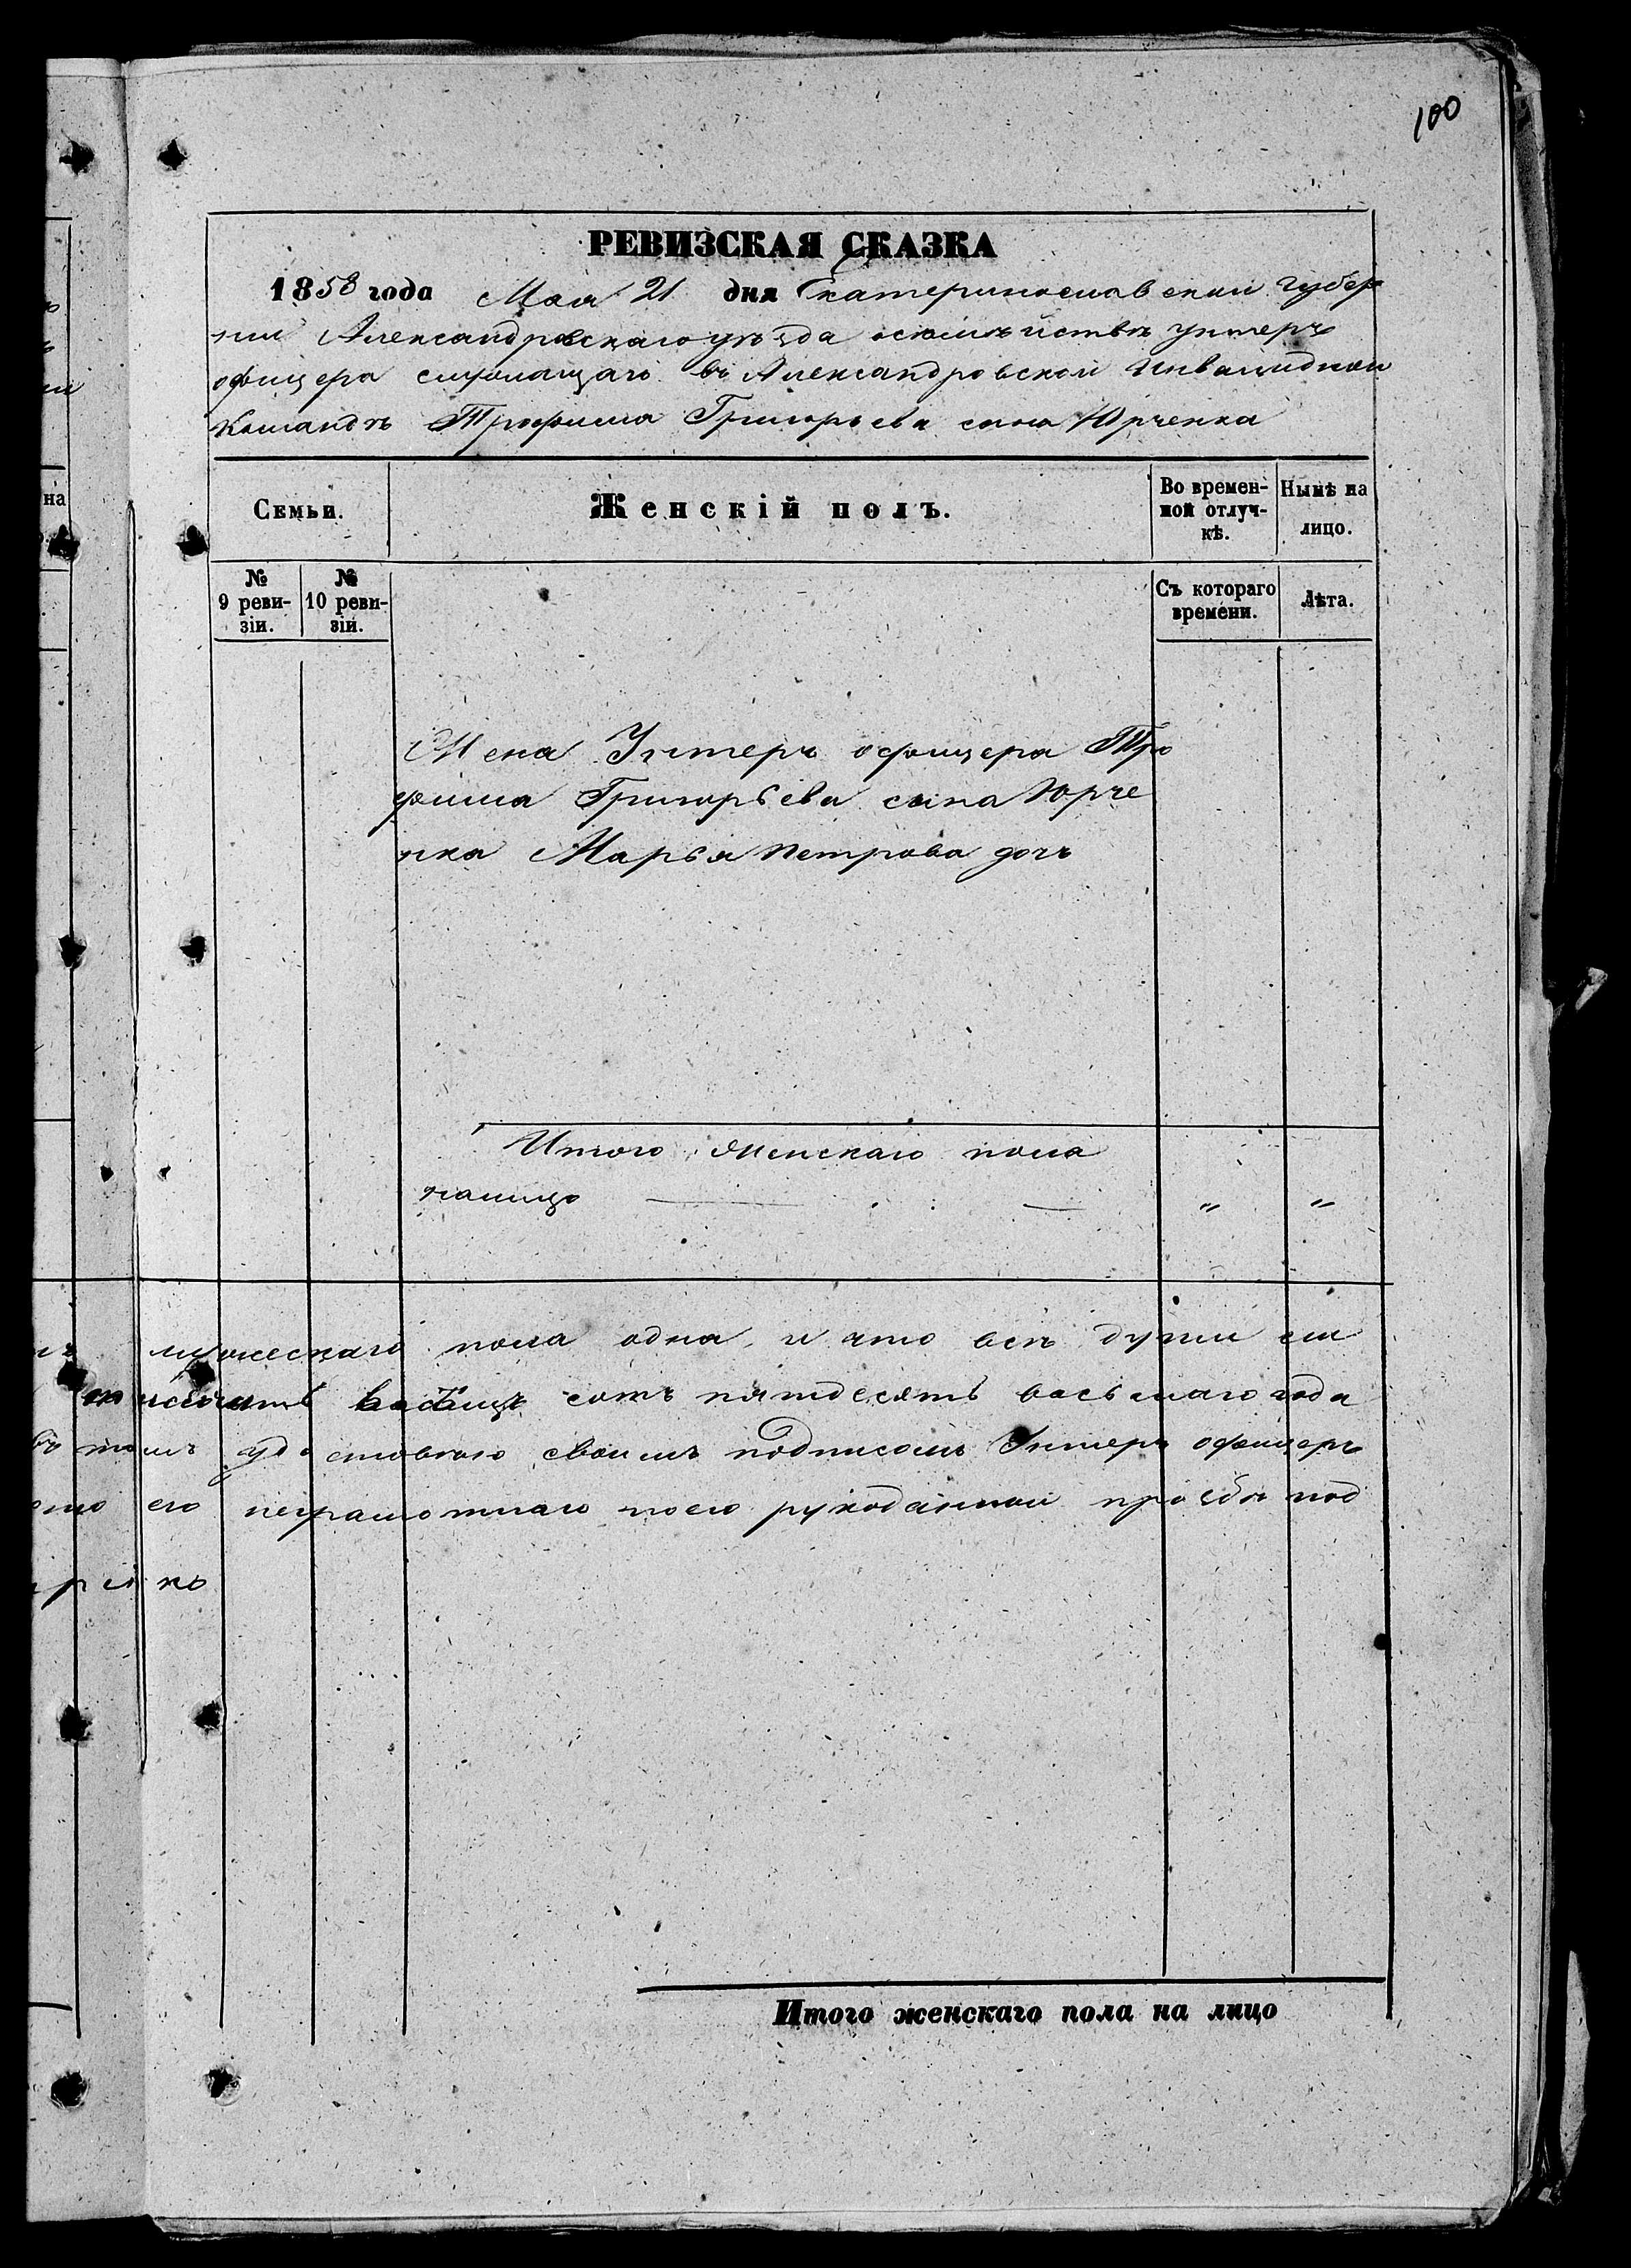 100
РЕВИЗСКАЯ СКАЗКА
1858 года Мая 21 дня Екатеринославской Губер
нии Александровскаго уѣзда о семѣйствѣ унтеръ
офицера служащаго въ Александровской Инвалидной
Командѣ Трофима Григорьева сына Юрченка
Семьи.
Женскій полъ.
Во времен-
ной отлуч-
кѣ.
Нынѣ на
лицо.
№
9 реви-
зіи.
№
10 реви-
зіи.
Съ котораго
времени.
Лѣта.
Жена Унтеръ офицера Тро
фима Григорьева сына Юрче
нка Марья Петрова дочь
Итого женскаго пола
налицо — — „ „
мужескаго пола одна, и что всѣ души
сотъ пятдесятъ восьмаго года
въ томъ удостовѣряю своимъ подписомъ Унтеръ офицеръ
его неграмотнаго поего рукоданной прозбѣ под
Итого женскаго пола на лицо
на